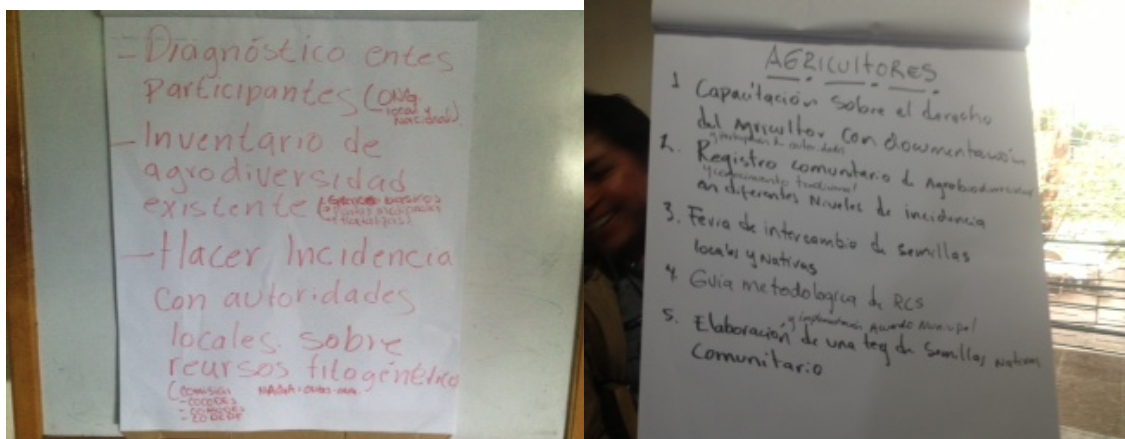 - Diagnóstico entes
participantes (ONG
- local y
Nacional)
- Inventario de
agrodiversidad
existente
- Hacer Incidencia
con autoridades
locales sobre
reursos fitogenético
(comisión
- COCODES
- COMUDES
- CODEDE
AGRICUltORES
1 Capacitación sobre el derecho
del Agricultor con documentación
2. Registro comunitario de Agrobiodiversidad
y conocimiento tradicional
en diferentes Niveles de incidencia
3. Feria de intercambio de semillas
locales y Nativas
4 Guia metodologica de RCS
y implementación Acuerdo Municipal
5. Elaboración de una ley de Semillas Nativas
Comunitario